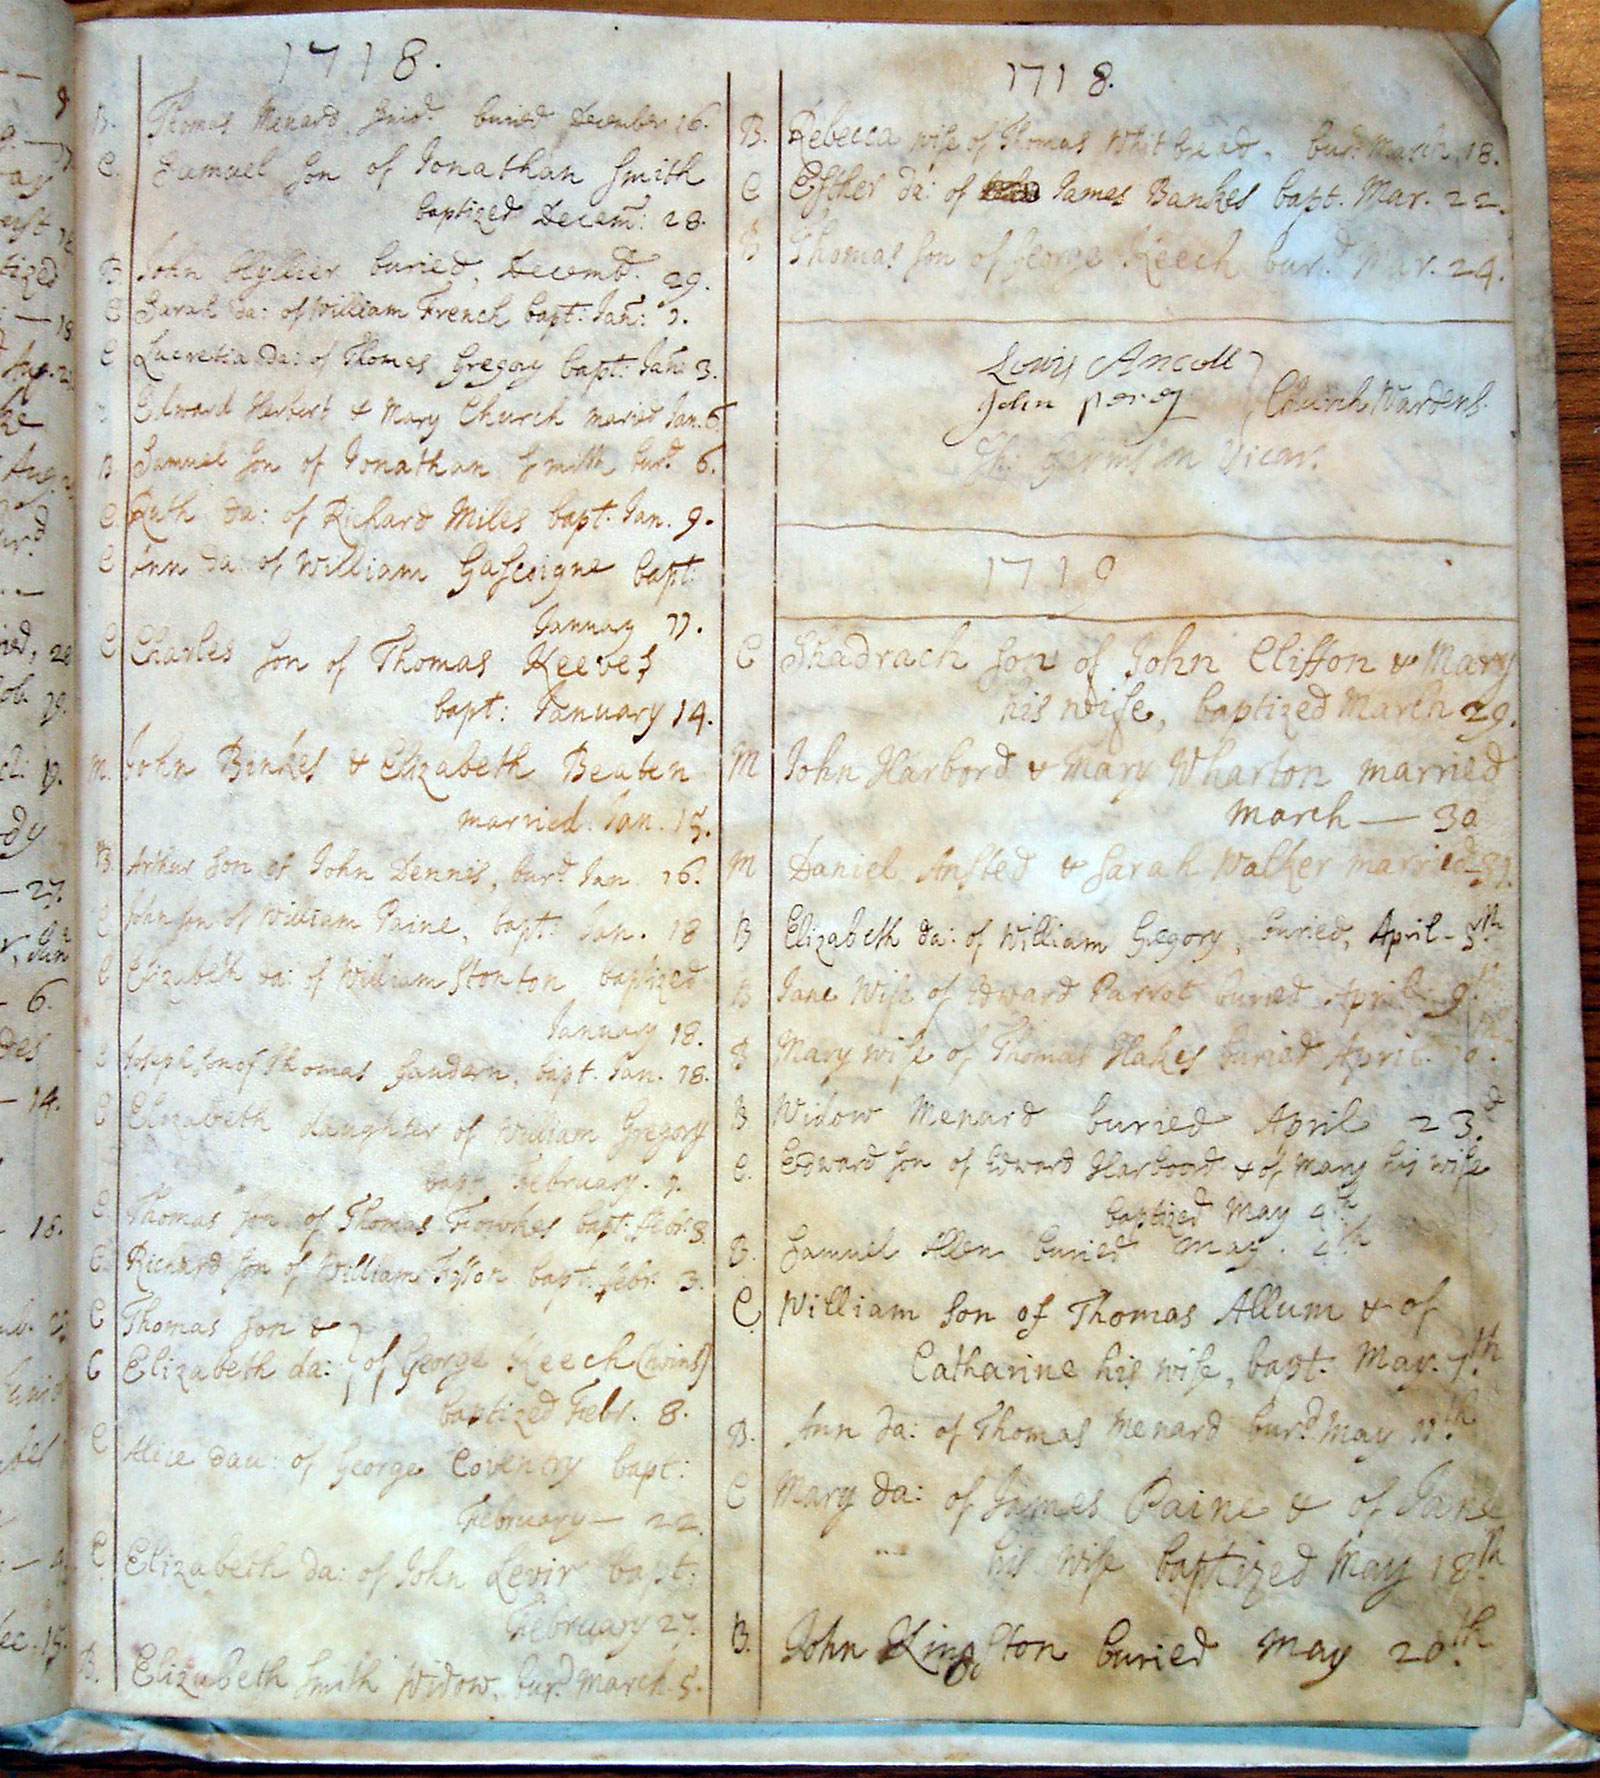 1718.
B. Thomas Menard buried December 16.
C. Samuel Son of Jonathan Smith
baptized Decem: 28.
B John buried, Decemb. 29.
C Sarah da: of William French bapt: Jan: 1.
C Lucretia da: of Thomas Gregory bapt: Jan: 3.
Edward Herbert & Mary Church maried Jan. 6
B Samuel Son of Jonathan Smith bur.d 6.
C. Ruth da: of Richard Miles bapt. Jan. 9.
C Ann da: of William Gascoigne bapt:
January 11.
C Charles Son of Thomas Keeves
bapt: January 14.
M. John Binkes & Elizabeth Beaten
married. Jan. 15.
B Arthur Son of John Dennis, bur.d Jan. 16.
C John Son of William Paine, bapt: Jan. 18
C Elizabeth da: of William Stonton baptized
January 18.
C Joseph Son of Thomas Saudern, bapt. Jan. 18.
C Elizabeth daughter of William Gregory
bapt. February. 1.
C. Thomas Son of Thomas Fowkes bapt: Febr: 3.
C. Richard Son of William Tysson bapt. Febr. 3.
C Thomas Son &
C Elizabeth da: of George Keech (twins)
baptized Febr. 8.
C Alice dau: of George Coventry bapt:
February — 22.
C. Elizabeth da: of John Levir bapt:
February 27.
B. Elizabeth Smith Widow, bur.d March. 5.
1718.
B. Rebecca wife of Thomas Whitbread, bur.d March, 18.
C Esther da: of James Bankes bapt. Mar. 22.
B Thomas Son of George Keech bur.d Mar. 24.
Lowis Ancoll
John perey Church Wardens.
Vicar.
1719
C Shadrach Son of John Cliffon & Mary
his wife, baptized March 29.
M John Harbord & Mary Wharton married
March — 30
M Daniel Ansted & Sarah Walker married 31.
B Elizabeth da: of William Gregory, buried, April – 5th
B Jane Wife of Edward Parrot buried April. 9th
B Mary wife of Thomas Hakes buried April. 10th.
B Widow Menard buried April 23.d
C. Edward Son of Edward Harboord & of Mary his wife
baptized May 4th
B. Samuel Allen buried May. 4th
C. William Son of Thomas Allum & of
Catharine his wife, bapt. May. 7.th
B. Ann da: of Thomas Menard bur.d May 11.th
C Mary da: of James Paine & of Jane
his Wife baptized May 18.th
B. John Kingston buried May 20.th